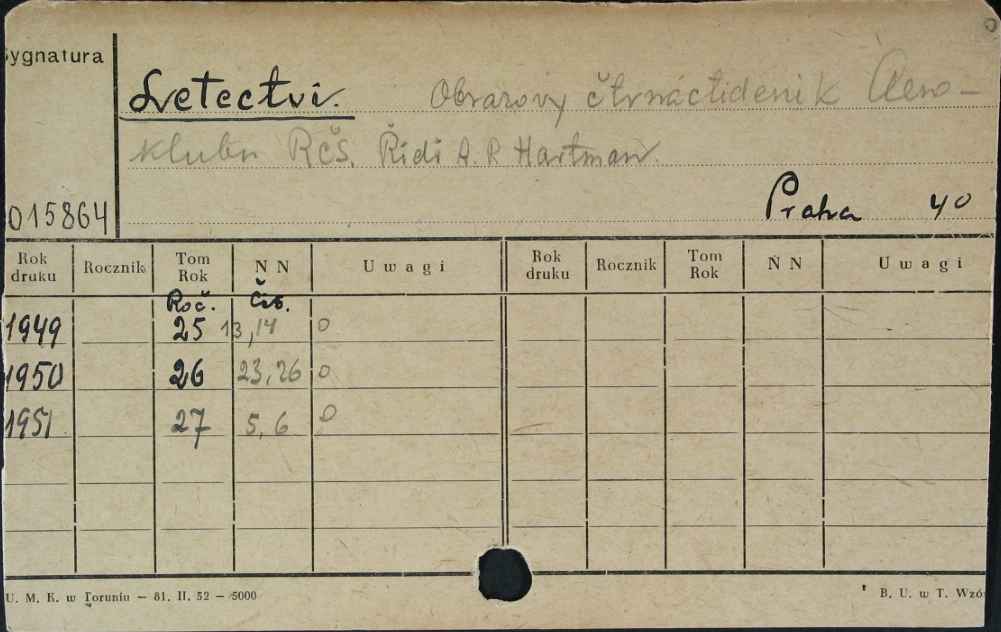 Sygnatura
Letectví. Obrazový čtrnáctideník Aero-
klubu Rčs. Řídí A. R Hartman.
015864
Praha 40
Rok druku Rocznik Tom Rok N N Uwagi Rok druku Rocznik Tom Rok N N Uwagi
Roč. Čís.
1949 25 13, 14 0
1950 26 23, 26 0
1951 27 5, 6 0
U. M. K. w Toruniu — 81. II. 52 — 5000 B. U. w T. Wzó